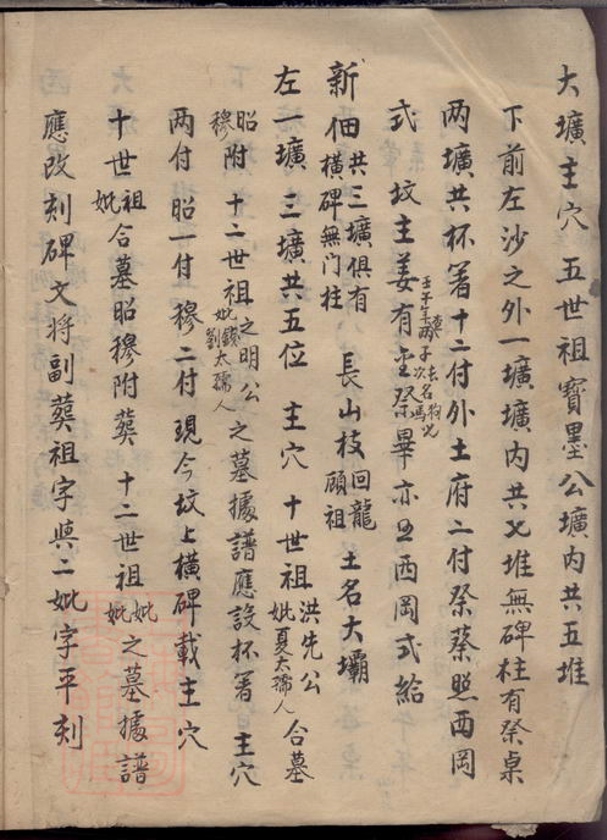 大壙主穴　五世祖寶墨公壙內共五堆
下前左沙之外一壙壙內共七堆無碑柱有祭桌
兩壙共杯箸十二付外土府二付祭蔡照西岡
式　坟主姜有　祭畢亦照西岡式給
新佃共三壙俱有橫碑無门柱　長山枝回龍顧祖　土名大壩
左一壙　三壙共五位　主穴　十世祖洪先公妣夏太孺人合墓
昭穆附　十二世祖之明公妣劉太孺人之墓據譜應設杯箸　主穴
两付昭一付穆二付現今坟上橫碑載主穴
十世祖妣合墓昭穆附葬　十二世祖妣妣之墓據譜
應改刻碑文將副葬祖字與二妣字平刻